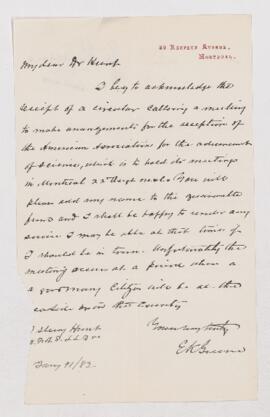 Montreal.
My dear Dr Hunt
I beg to acknowledge the
receipt of a circular calling a meeting
to make arrangements for the reception of
the American Association for the advancement
of Science, which is to hold its meetings
in Montreal 23rd Augt next. You will
please add my name to the guarantee
fund and I shall be happy to render any
service I may be able at that time if
I should be in town. Unfortunately the
meeting occurs at a period when a
good many Citizens will be at the
seaside or in the Country
Yours very truly
E K Greene
T Sterry Hunt